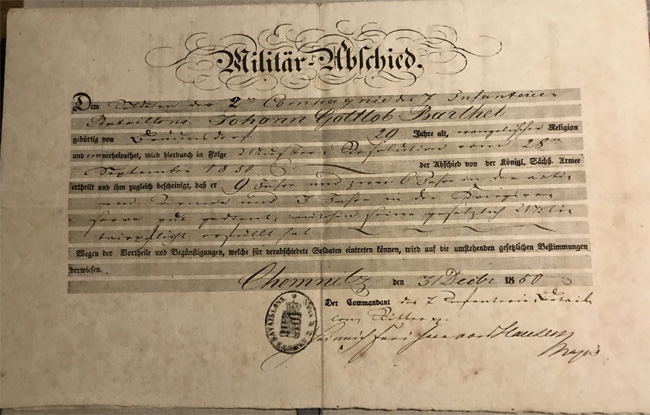 Militär-Abschied.
Dem Soldaten der 2ten Compagnie des 7. Infanterie-
Bataillons, Johann Gottlob Barthel
gebürtig von Bräunsdorf, 29 Jahre alt, evangelischer Religion
und unverheirathet, wird hierdurch in Folge Ministerial Resolution vom 28ten
September 1850 der Abschied von der Königl. Sächs. Armee
ertheilt und ihm zugleich bescheinigt, daß er 9 Jahre und zwar 6 Jahre in der acti-
ven Armee und 3 Jahre in der Kriegsre-
serve gut gedient, mithin seine gesetzliche Mili-
tairpflicht erfüllt hat.
Wegen der Vortheile und Begünstigungen, welche für verabschiedete Soldaten eintreten können, wird auf die umstehenden gesetzlichen Bestimmungen
verwiesen.
Chemnitz den 31 Decbr 1850
Der Commandant des 7. Infanterie Batail-
lons Ritter
Heinrich Freiherr von Hausen
Major